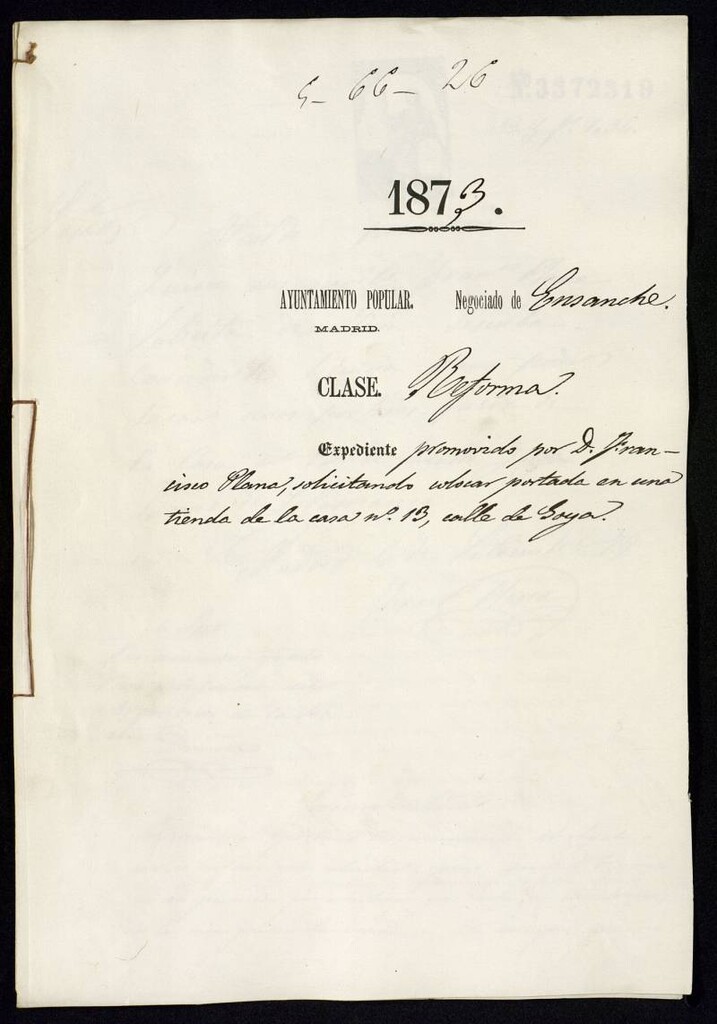 5-66-26
1873.
AYUNTAMIENTO POPULAR. Negociado de Ensanche.
MADRID.
CLASE. Reforma.
Expediente promovido por D. Fran-
cisco Plana, solicitando colocar portada en una
tienda de la casa nº. 13, calle de Goya.